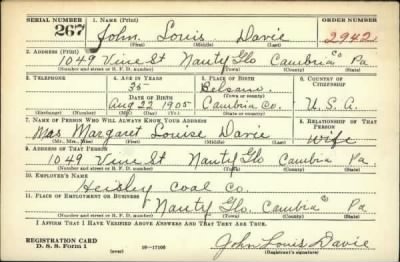 SERIAL NUMBER 1. NAME (Print) ORDER NUMBER
267 John Louis Davie 2942
(First) (Middle) (Last)
2. ADDRESS (Print)
1049 Vine St Nanty Glo Cambria Co Pa
(Number and street or R. F. D. number) (Town) (County) (State)
3. TELEPHONE 4. AGE IN YEARS 5. PLACE OF BIRTH 6. COUNTRY OF CITIZENSHIP
35 Belsano
DATE OF BIRTH (Town or county)
Aug 22 1905 Cambria Co. U.S.A.
(Exchange) (Number) (Mo.) (Day) (Yr.) (State or country)
7. NAME OF PERSON WHO WILL ALWAYS KNOW YOUR ADDRESS 8. RELATIONSHIP OF THAT PERSON
Mrs Margaret Louise Davie wife
(Mr., Mrs., Miss) (First) (Middle) (Last)
9. ADDRESS OF THAT PERSON
1049 Vine St Nanty Glo Cambria Pa
(Number and street or R. F. D. number) (Town) (County) (State)
10. EMPLOYER'S NAME
Heisley Coal Co.
11. PLACE OF EMPLOYMENT OR BUSINESS
Nanty Glo. Cambria Co Pa
(Number and street or R. F. D. number) (Town) (County) (State)
I AFFIRM THAT I HAVE VERIFIED ABOVE ANSWERS AND THAT THEY ARE TRUE.
REGISTRATION CARD
D. S. S. Form 1 (over) 16—17105 John Louis Davie
(Registrant's signature)